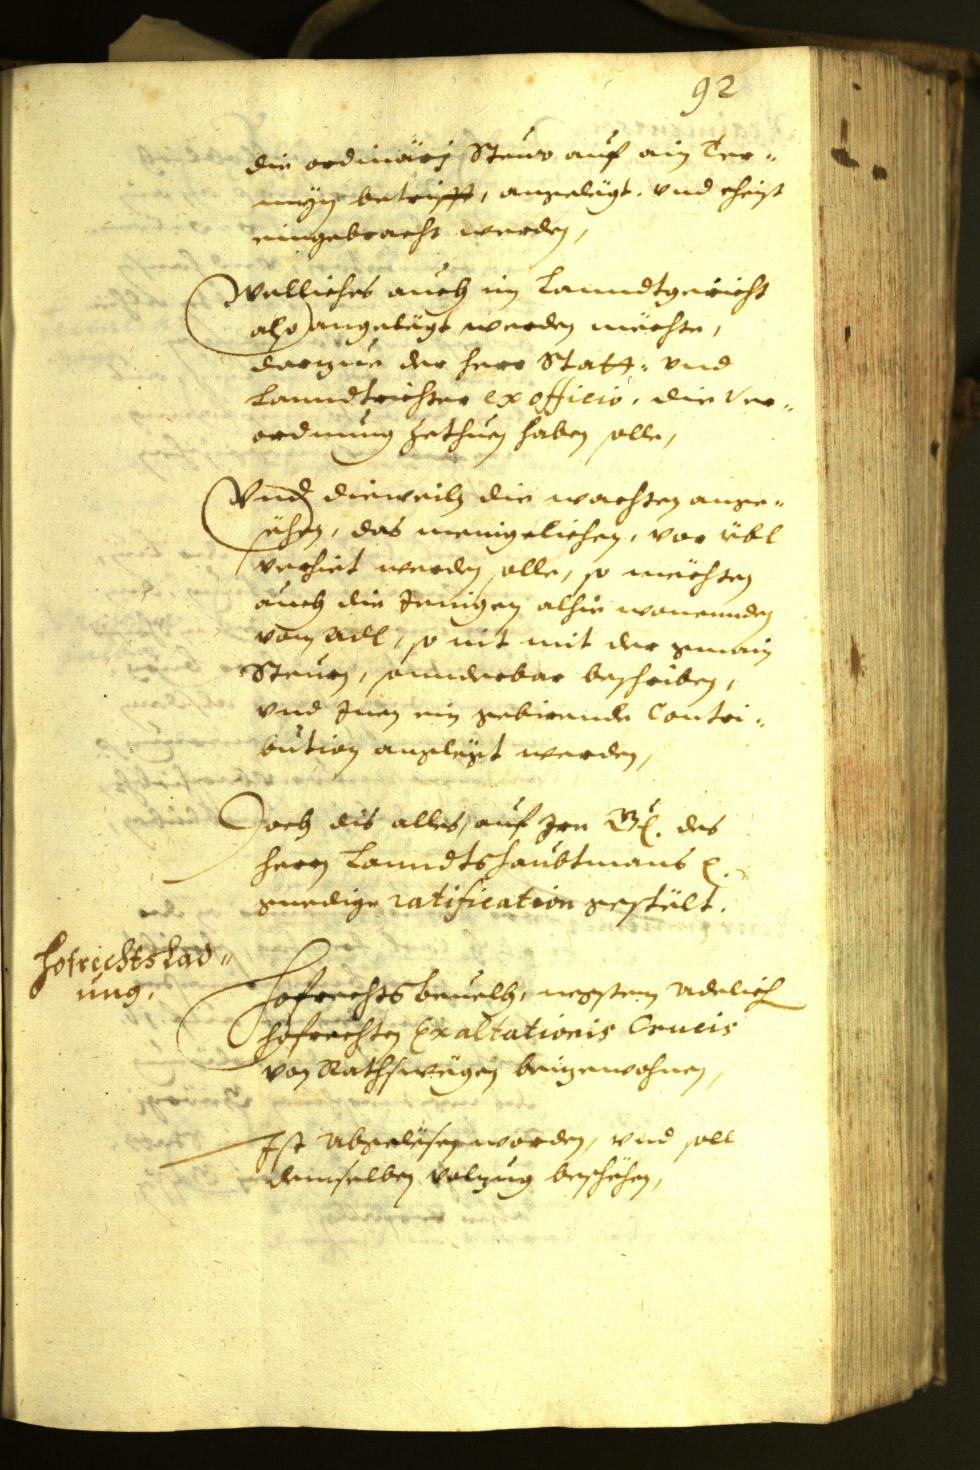 92
die ordinärj Steur auf ain Ter-
myn betrifft, angelegt, vnd ehist
eingebracht werden,
Welliches auch im Lanndtgericht
also angelegt werden möchte,
darzue der herr Statt- vnd
Lanndtrichter ex officio, die Ver-
ordnung zethuen haben solle,
Vnd dieweiln die wachten ange-
sehen, das meniglichen, vor übl
verhiet werden solle, so möchten
auch die Jenigen alhie wonennden
vom Adl, so nit mit der gmain
Steurn, sonnderbar beschriben,
vnd Inen ein gebirende Contri-
bution angelegt werden,
Doch dis alles, auf Irr Gn. des
herrn Lanndtshaubtmans
gnedige ratification gestelt.
Hofrechtslad-
ung.
Hofrechtsbeuelh, negstem Adelich
hofrechten Exaltationis Crucis
von Rathswegen beizewohnen,
Ist Abgelesen worden, vnd soll
demselben volzug beschehen,